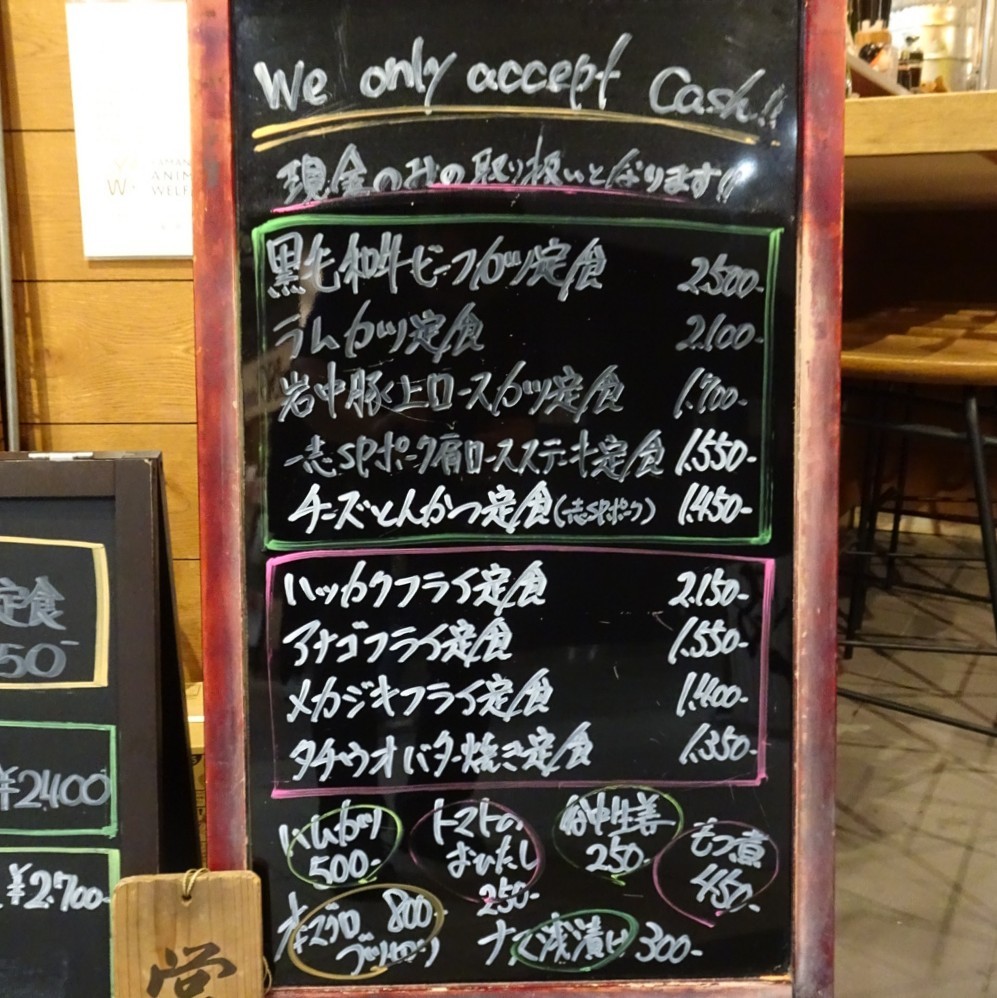 We only accept Cash!!
現金のみの取り扱いとなります!!
黒毛和牛ビーフカツ定食 2500-
ラムカツ定食 2.100-
岩中豚く上ロースカツ定食 1.700-
一志SPポーク肩ロースステーキ定食 1.550-
チーズとんかつ定食(一志SPポーク) 1.450-
ハッカクフライ定食 2.150-
アナゴフライ定食 1.550-
メカジキフライ定食 1.400-
タチウオバター焼き定食 1.350-
ハムカツ
500-
トマトの
おひたし
250-
谷中生姜
250-
もつ煮
450-
本マグロ 800-
ブツ
ナス浅漬け 300-
定食
50-
¥2400
¥2.700-
営
ANIM
WELF